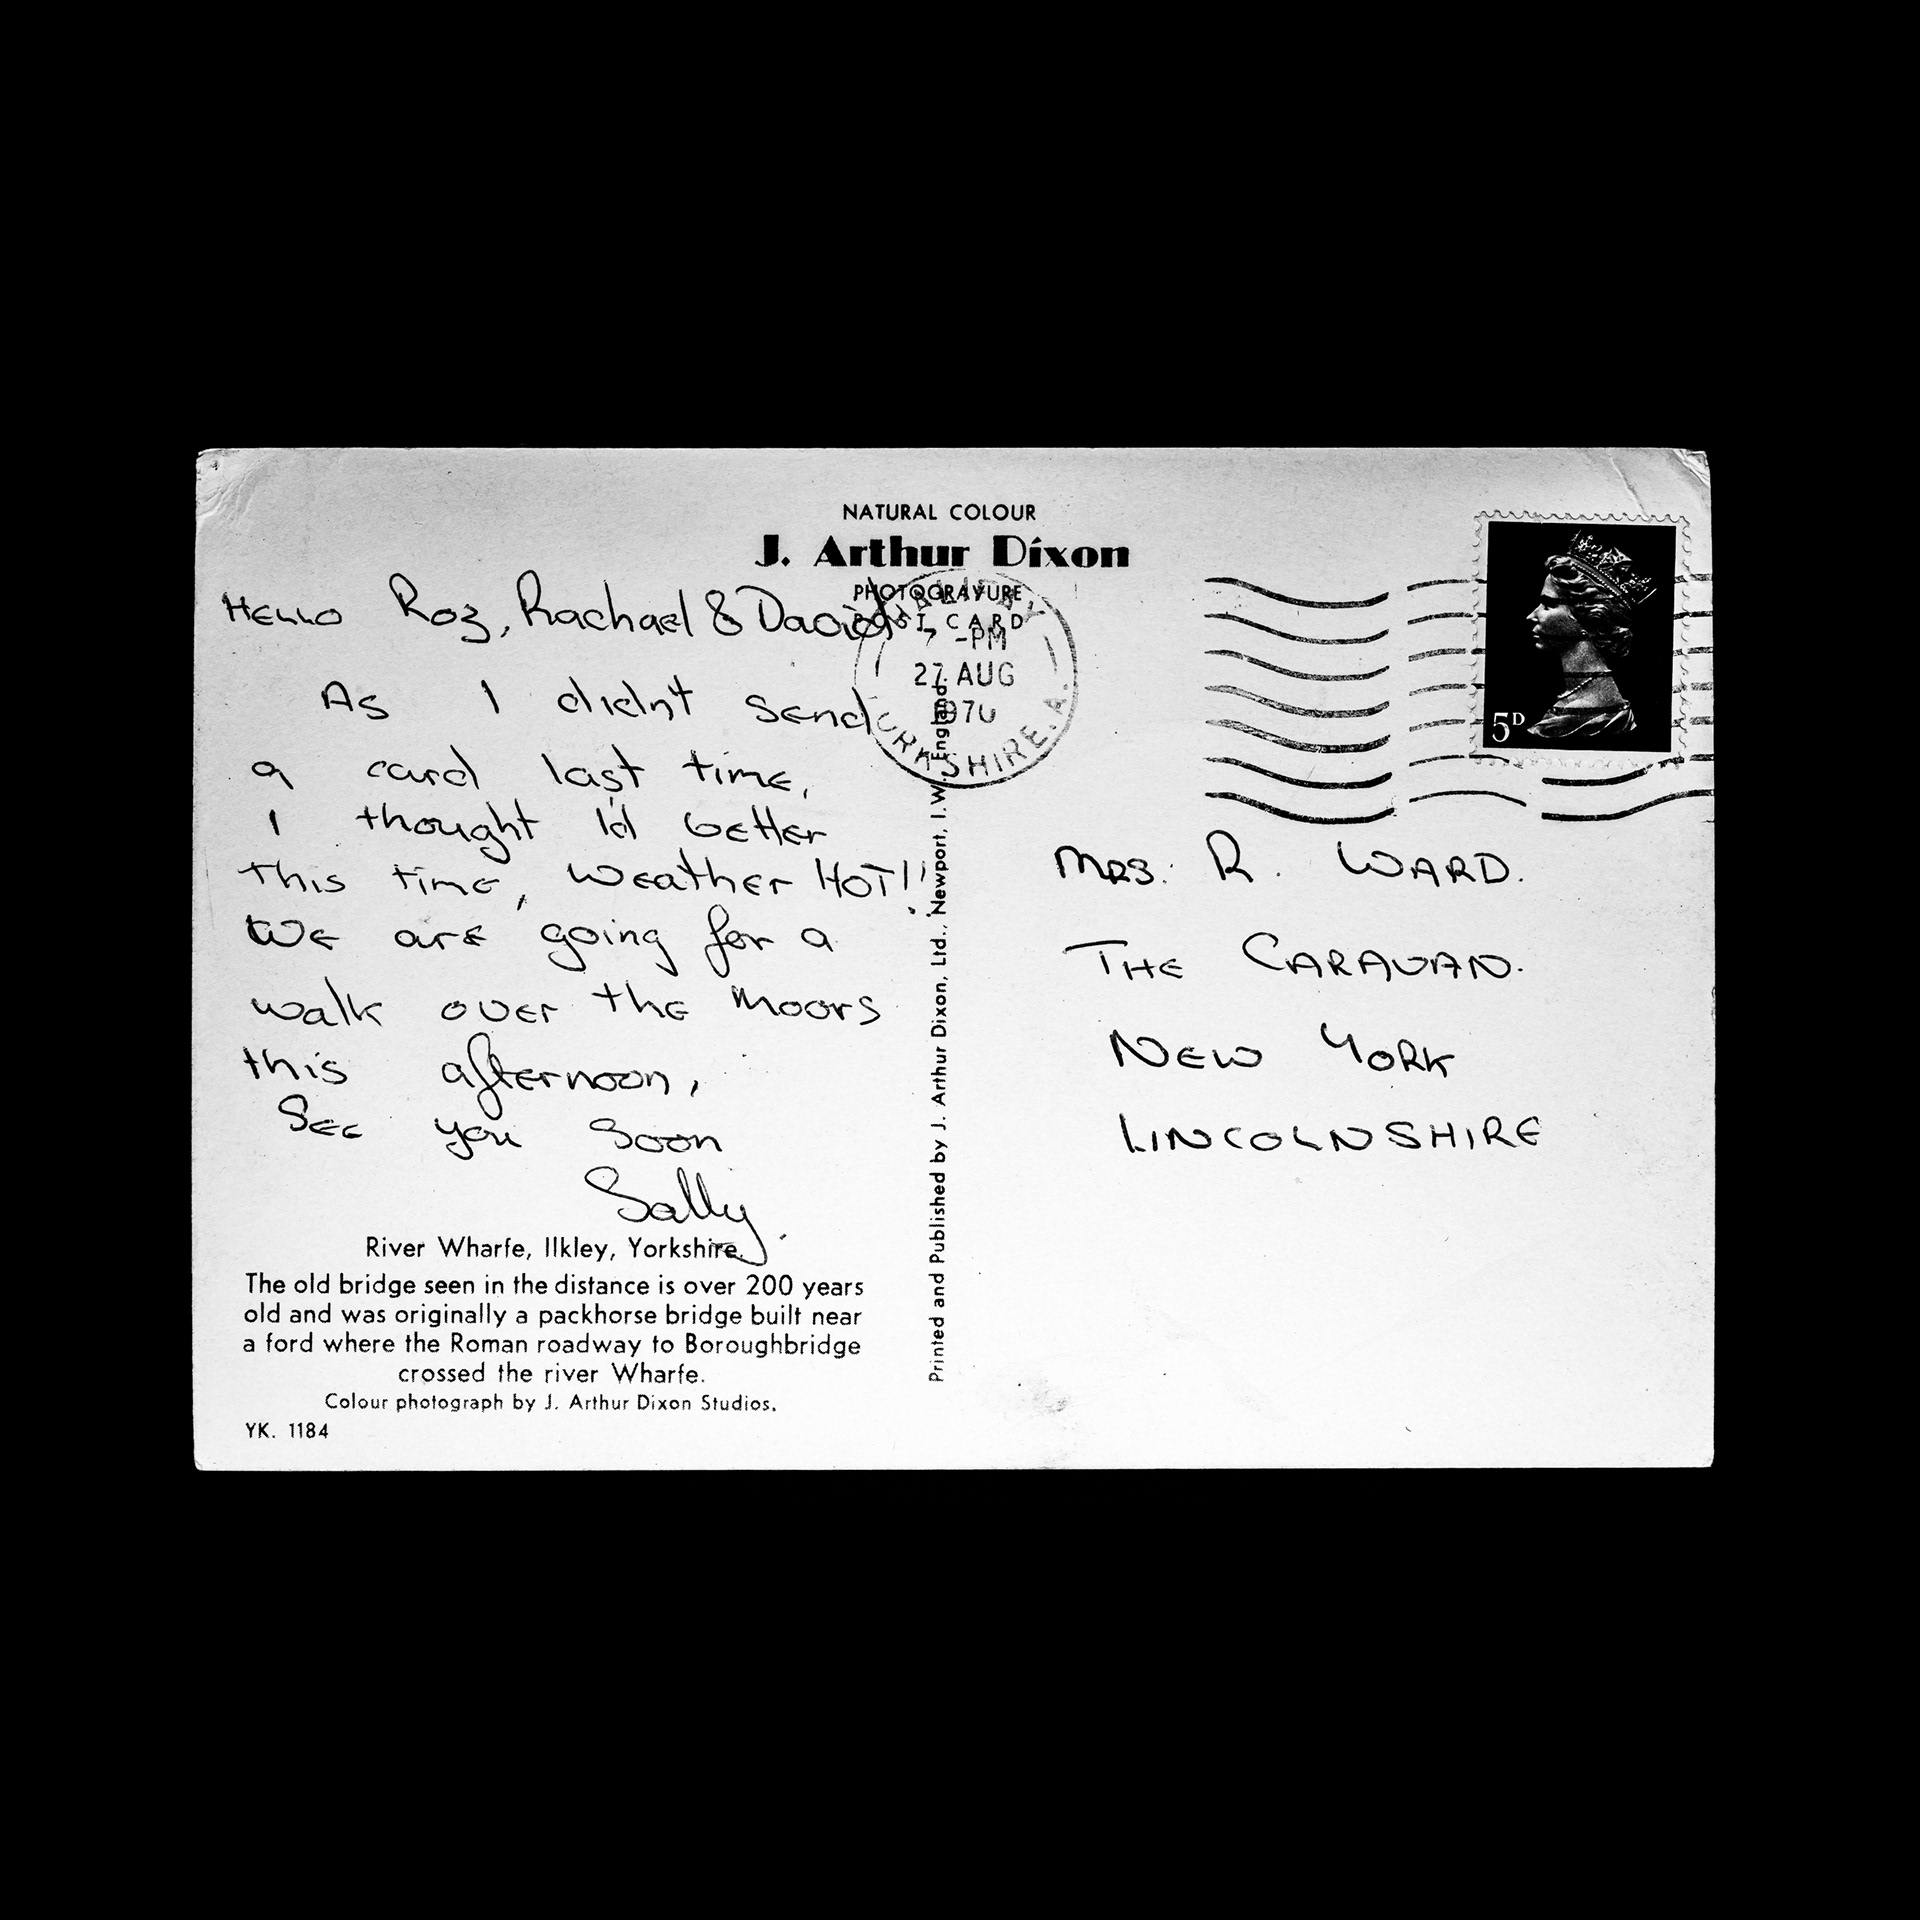 NATURAL COLOUR
J. Arthur Dixon
PHOTOGRAVURE
POST CARD
-PM
27 AUG
1970
YORKSHIRE. A.
5D
Hello Roz, Rachael & David
As I didn't send
a card last time,
I thought I'd better
this time, weather HOT!!
We are going for a
walk over the moors
this afternoon,
See you soon
Sally.
River Wharfe, Ilkley, Yorkshire.
The old bridge seen in the distance is over 200 years
old and was originally a packhorse bridge built near
a ford where the Roman roadway to Boroughbridge
crossed the river Wharfe.
Colour photograph by J. Arthur Dixon Studios.
YK. 1184
Printed and Published by J. Arthur Dixon, Ltd., Newport, I.W. England.
MRS. R. WARD.
THE CARAVAN.
NEW YORK
LINCOLNSHIRE